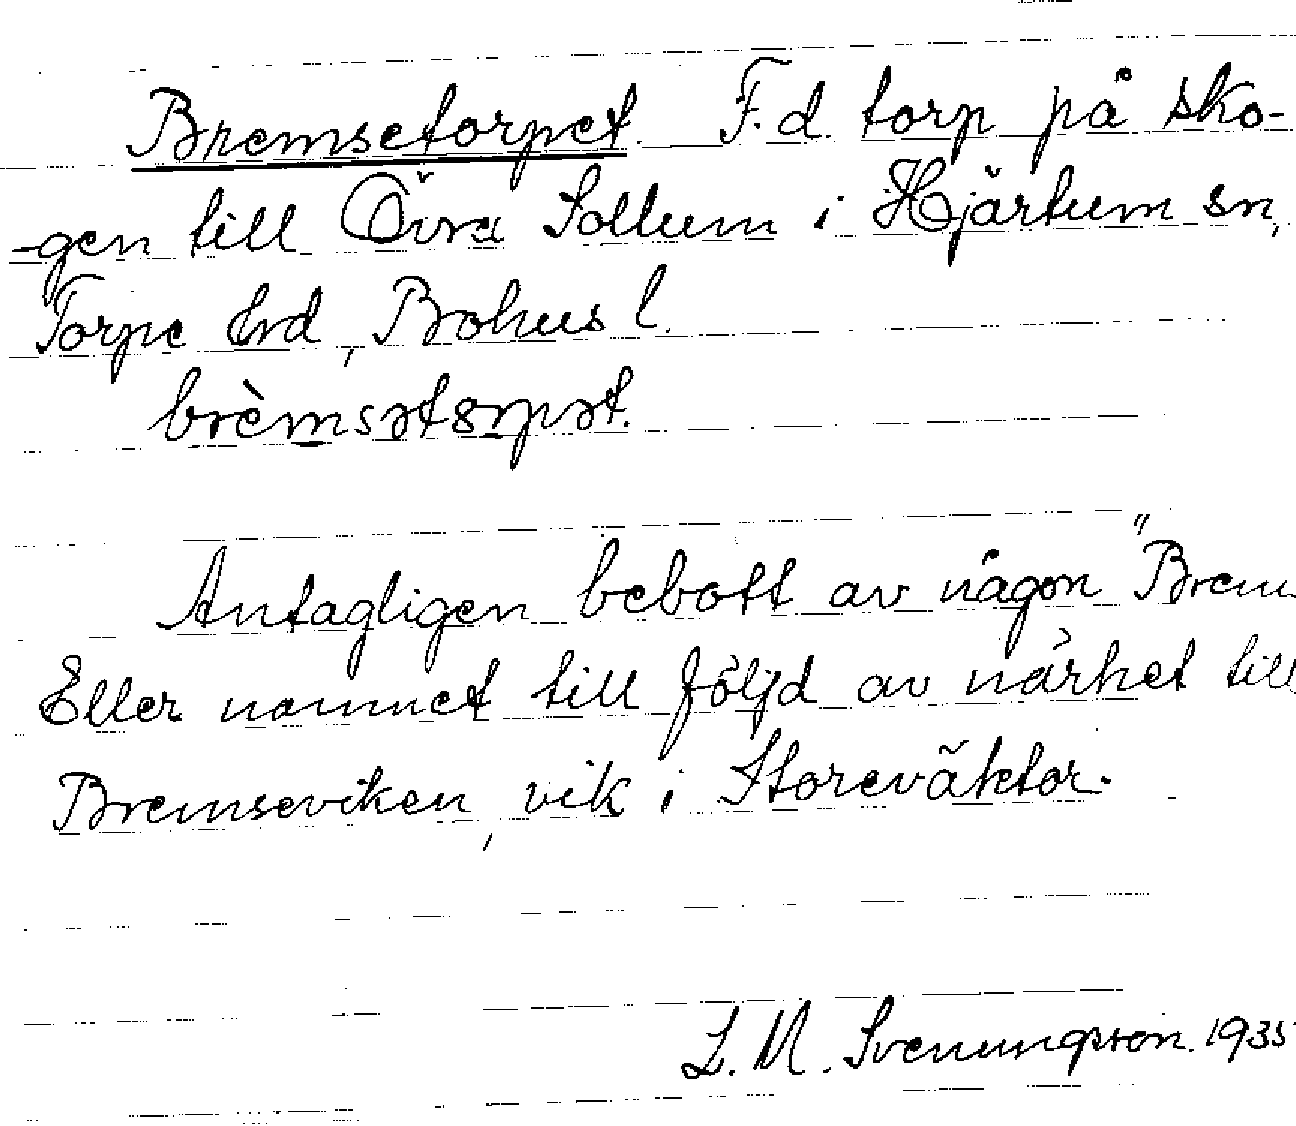 Bremsetorpet. F.d. torp på sko-
-gen till Övra Sollum i Hjärtum sn,
Torpe hrd, Bohus l.
brèmsətɷrpət.
Antagligen bebott av någon "Brem
Eller namnet till följd av närhet till
Bremseviken, vik i Storeväktor.
L. M. Svenungsson. 1935